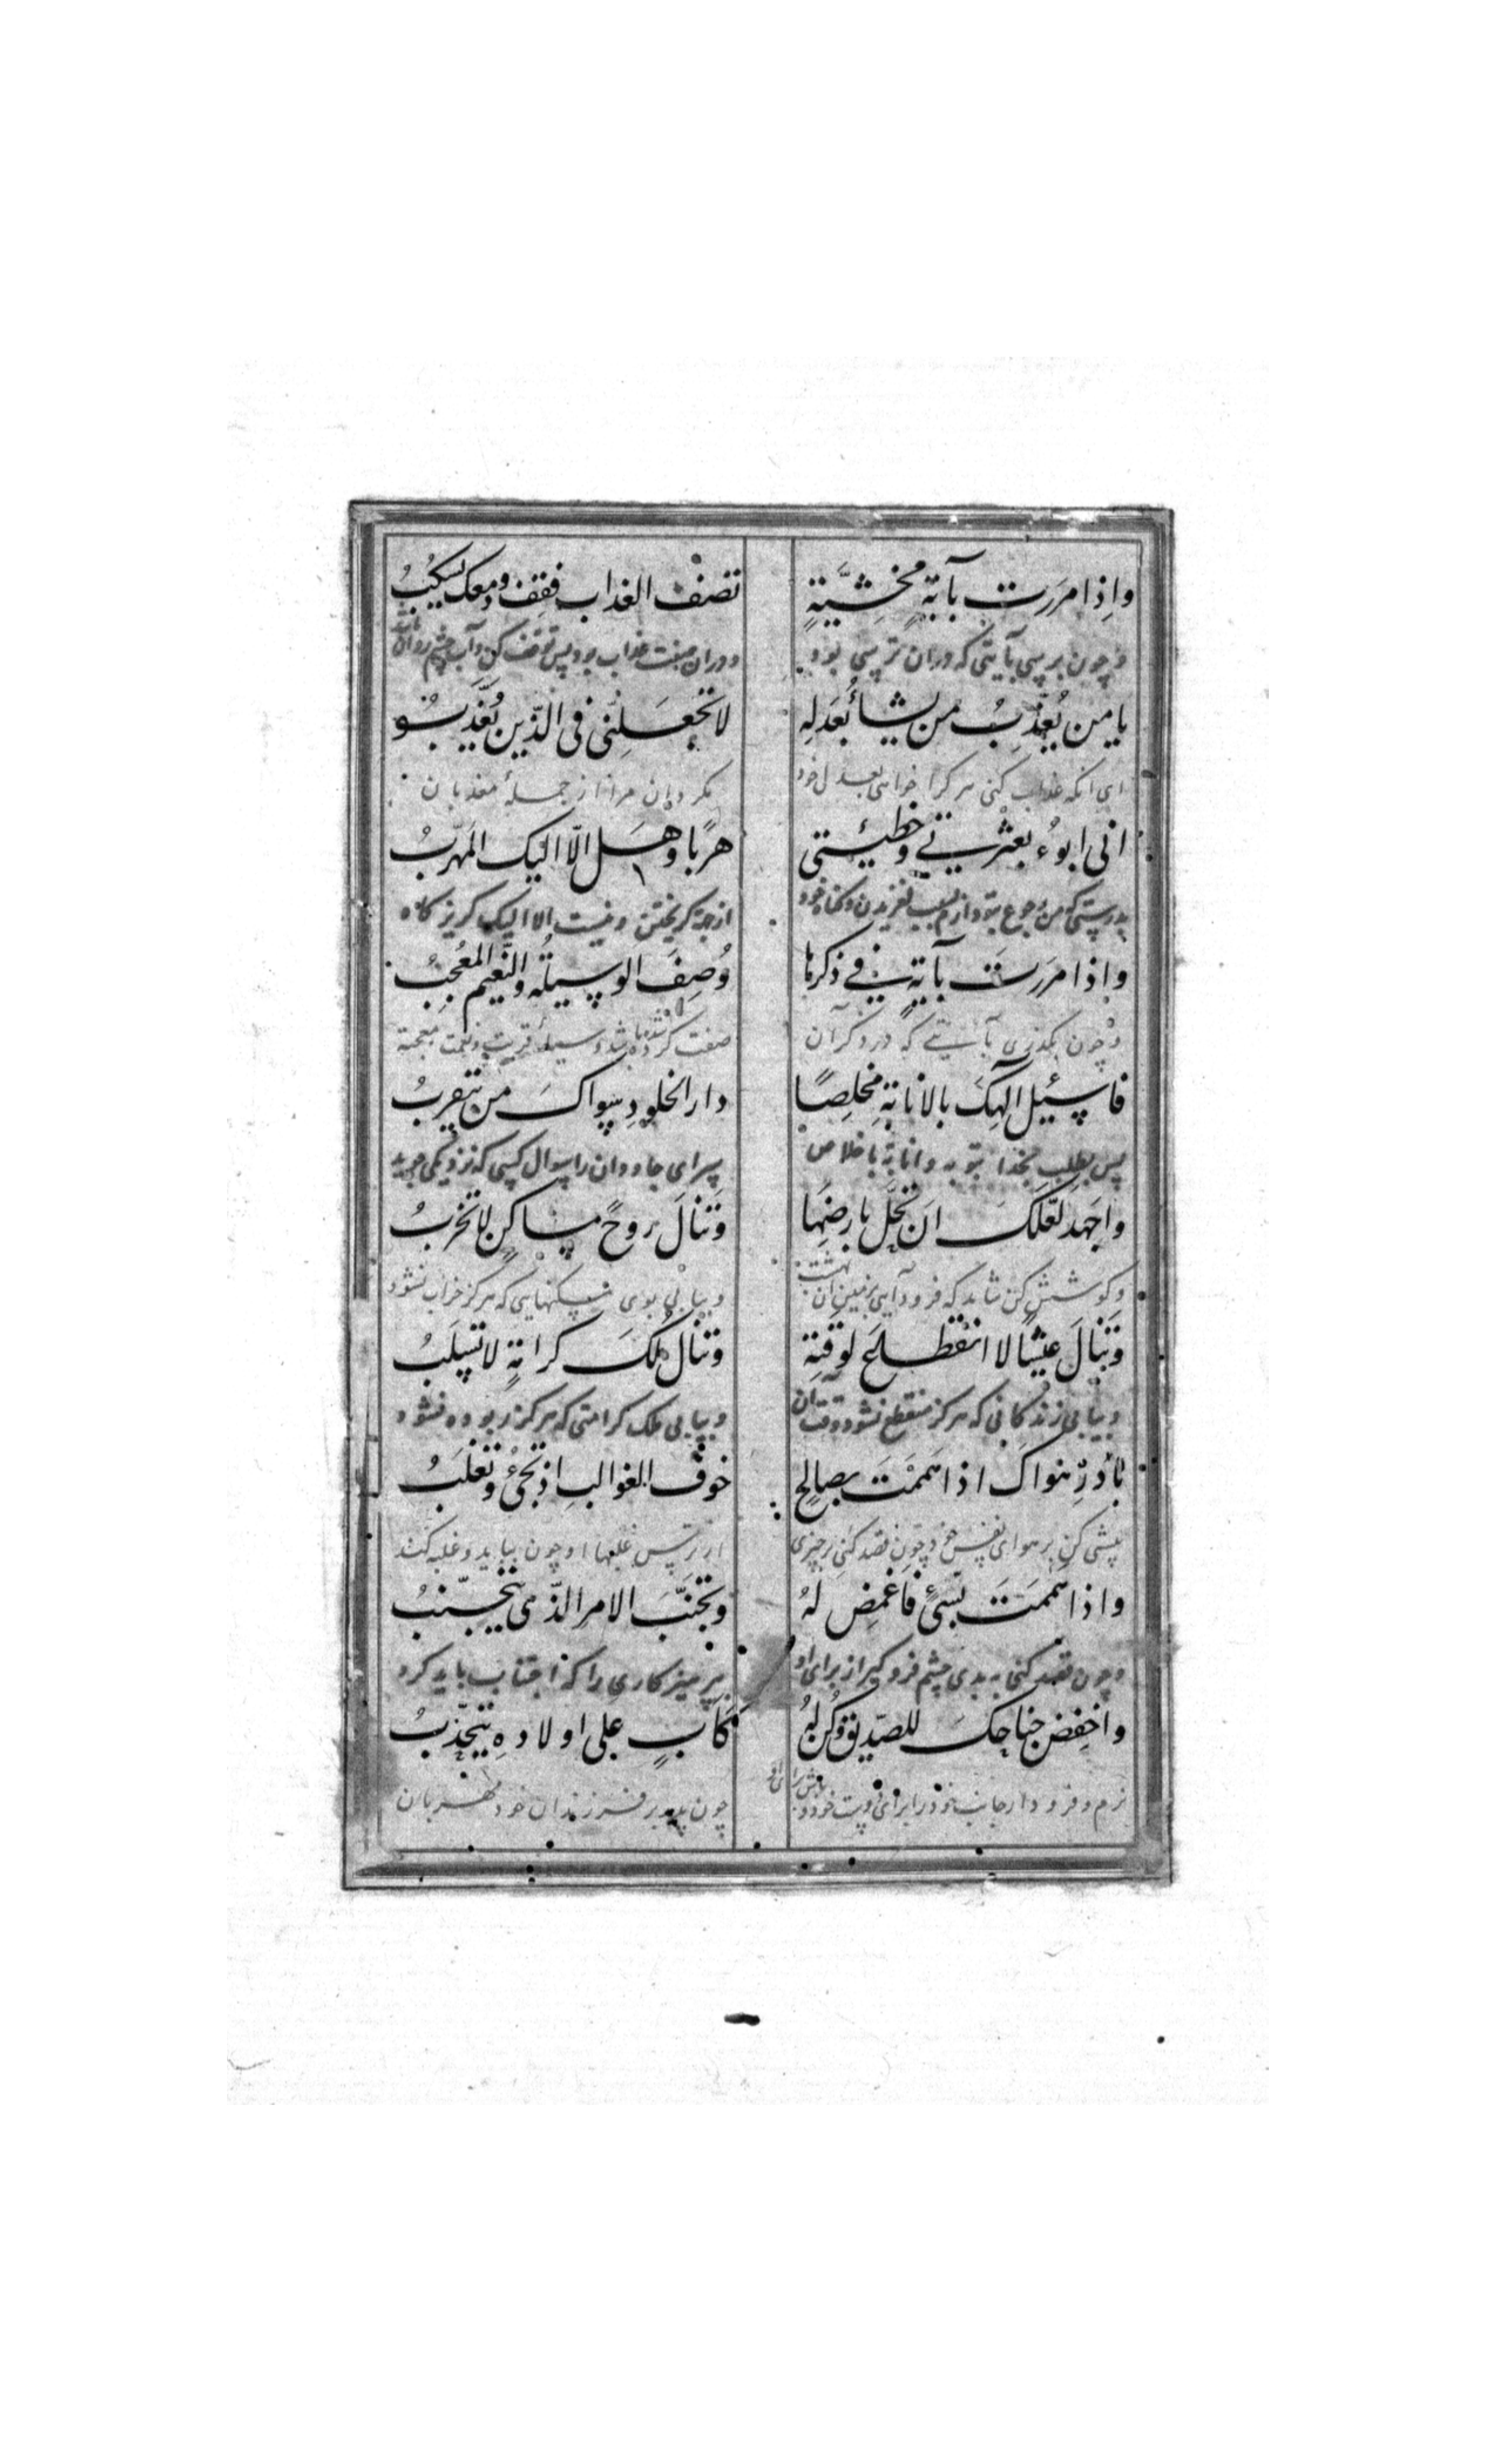 واذا مررت بآیةٍ مخشیّةٍ تصف العذاب فقف ودمعک یسکبُ
وچون برسی بآیتی که دران ترسی بود ودران صفت عذاب بود پس توقف کن وآب چشم روان
یا من یُعذّبُ من یشاءُ بعَدلِه لا تجعَلنّی فی الذّین تُعذّبُ
ای انکه عذاب کنی هرکرا خواهی بعدل خود مکردان مرا از جملهٔ معذبان
انی ابوءُ بعثرتی وخطیئتی هربًا وهَل الّا الیک المَهربُ
بدرستی که من رجوع بتو دارم بسبب لغزیدن وکناه خود از جهة کریختن ونیست الا الیک کریزکاه
واذا مرَرتَ بآیةٍ فی ذکرها وُصِفَ الوسیلُه والنّعیم المُعجبُ
وچون بکذری بآیتی که در ذکر آن صفت کرده شده باشد وسیلهٔ قربت ونعمت معجبه
فاسئیل آلهکَ بالانابةِ مخلِصًا دار الخلودِ سِواکَ من یتقربُ
پس بطلب بخدا بتوبه وانابة باخلاص سرای جاودان را سوال کسی که نزدیکی جوید
واجهد لعلّکَ ان تحُلّ بارضِها وتنالَ روحً مساکنٍ لا تخربُ
وکوشش کن شاید که فرود آیی بزمین آن بهشت وبیابی بوی مسکنهایی که هرکز خراب نشود
وتنالَ عیشًا لا انقطاع لوقتِه وتنال مُلکَ کرامةٍ لا تسلبُ
وبیابی زندکانی که هرکز منقطع نشود وقت آن وبیابی ملک کرامتی که هرکز ربوده نشود
بادِر هواکَ اذا هممتَ بصالحٍ خوف الغوالبِ اذ تجئُ وتغلبُ
پیشی کن بر هوای نفس خود چون قصد کنی بر چیزی از ترس غلبها او چون بیاید وغلبه کند
واذا هممتَ بسیّئٍ فاغمض لهُ وتجنّبَ الامرَ الذّی یتجنّبُ
وچون قصد کنی به بدی چشم فروکیر از برای او بپرهیز کاری را که اجتناب باید کرد
واخفِض جناحکَ للصدیق وکُن لهُ کَابٍ علی اولادِهِ یتحدّبُ
نرم وفرو دار جانب خود را برای دوست خود و باش برای او چون پدر بر فرزندان خود مهربان